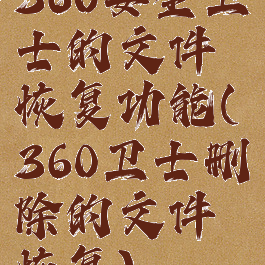 360安全卫
士的文件
恢复功能(
360卫士删
除的文件
恢复)